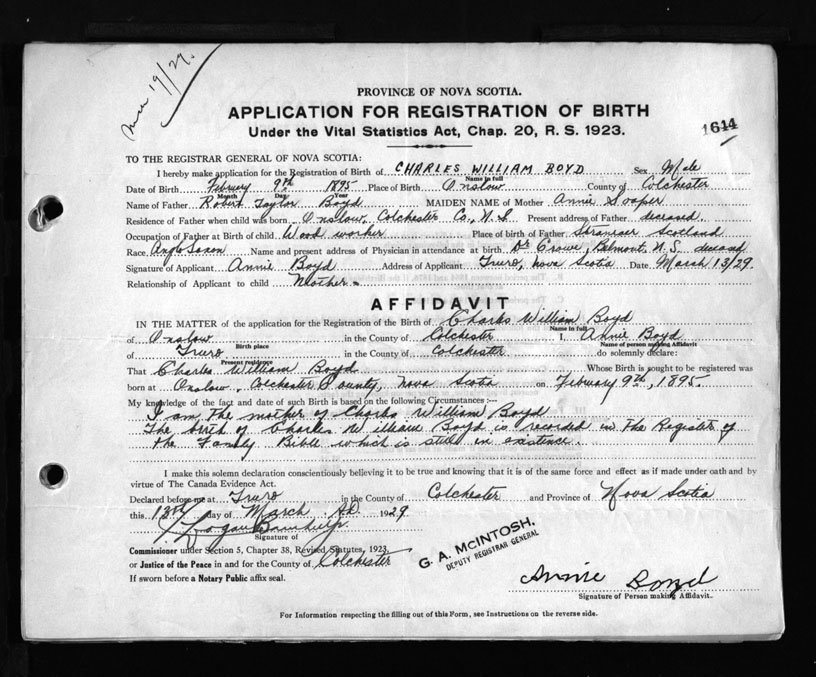 Mar 19/29.
PROVINCE OF NOVA SCOTIA.
APPLICATION FOR REGISTRATION OF BIRTH
Under the Vital Statistics Act, Chap. 20, R. S. 1923.
1644
TO THE REGISTRAR GENERAL OF NOVA SCOTIA:
I hereby make application for the Registration of Birth of CHARLES WILLIAM BOYD Sex Male
Name in full
Date of Birth February 9th 1895 Place of Birth Onslow County of Colchester
Month Day Year
Name of Father Robert Taylor Boyd MAIDEN NAME of Mother Annie Sooper
Residence of Father when child was born Onslow, Colchester Co., N.S. Present address of Father deceased.
Occupation of Father at Birth of child Wood worker Place of birth of Father Stranraer Scotland
Race Anglo Saxon Name and present address of Physician in attendance at birth Dr Crowe, Belmont, N.S. deceased
Signature of Applicant Annie Boyd Address of Applicant Truro, Nova Scotia Date March 13/29.
Relationship of Applicant to child Mother.
AFFIDAVIT
IN THE MATTER of the application for the Registration of the Birth of Charles William Boyd
Name in full
of Onslow in the County of Colchester I, Annie Boyd
Birth place Name of person making Affidavit
of Truro in the County of Colchester do solemnly declare:
Present residence
That Charles William Boyd Whose Birth is sought to be registered was
born at Onslow, Colchester County, Nova Scotia on February 9th, 1895.
My knowledge of the fact and date of such Birth is based on the following Circumstances:—
I am the mother of Charles William Boyd
The birth of Charles William Boyd is recorded in the Register of
the Family Bible which is still in existence.
I make this solemn declaration conscientiously believing it to be true and knowing that it is of the same force and effect as if made under oath and by
virtue of The Canada Evidence Act.
Declared before me at Truro in the County of Colchester and Province of Nova Scotia
this 13th day of March A.D. 1929
Signature of
Commissioner under Section 5, Chapter 38, Revised Statutes, 1923,
or Justice of the Peace in and for the County of Colchester
If sworn before a Notary Public affix seal.
G. A. McINTOSH,
DEPUTY REGISTRAR GENERAL
Annie Boyd
Signature of Person making Affidavit.
For Information respecting the filling out of this Form, see Instructions on the reverse side.